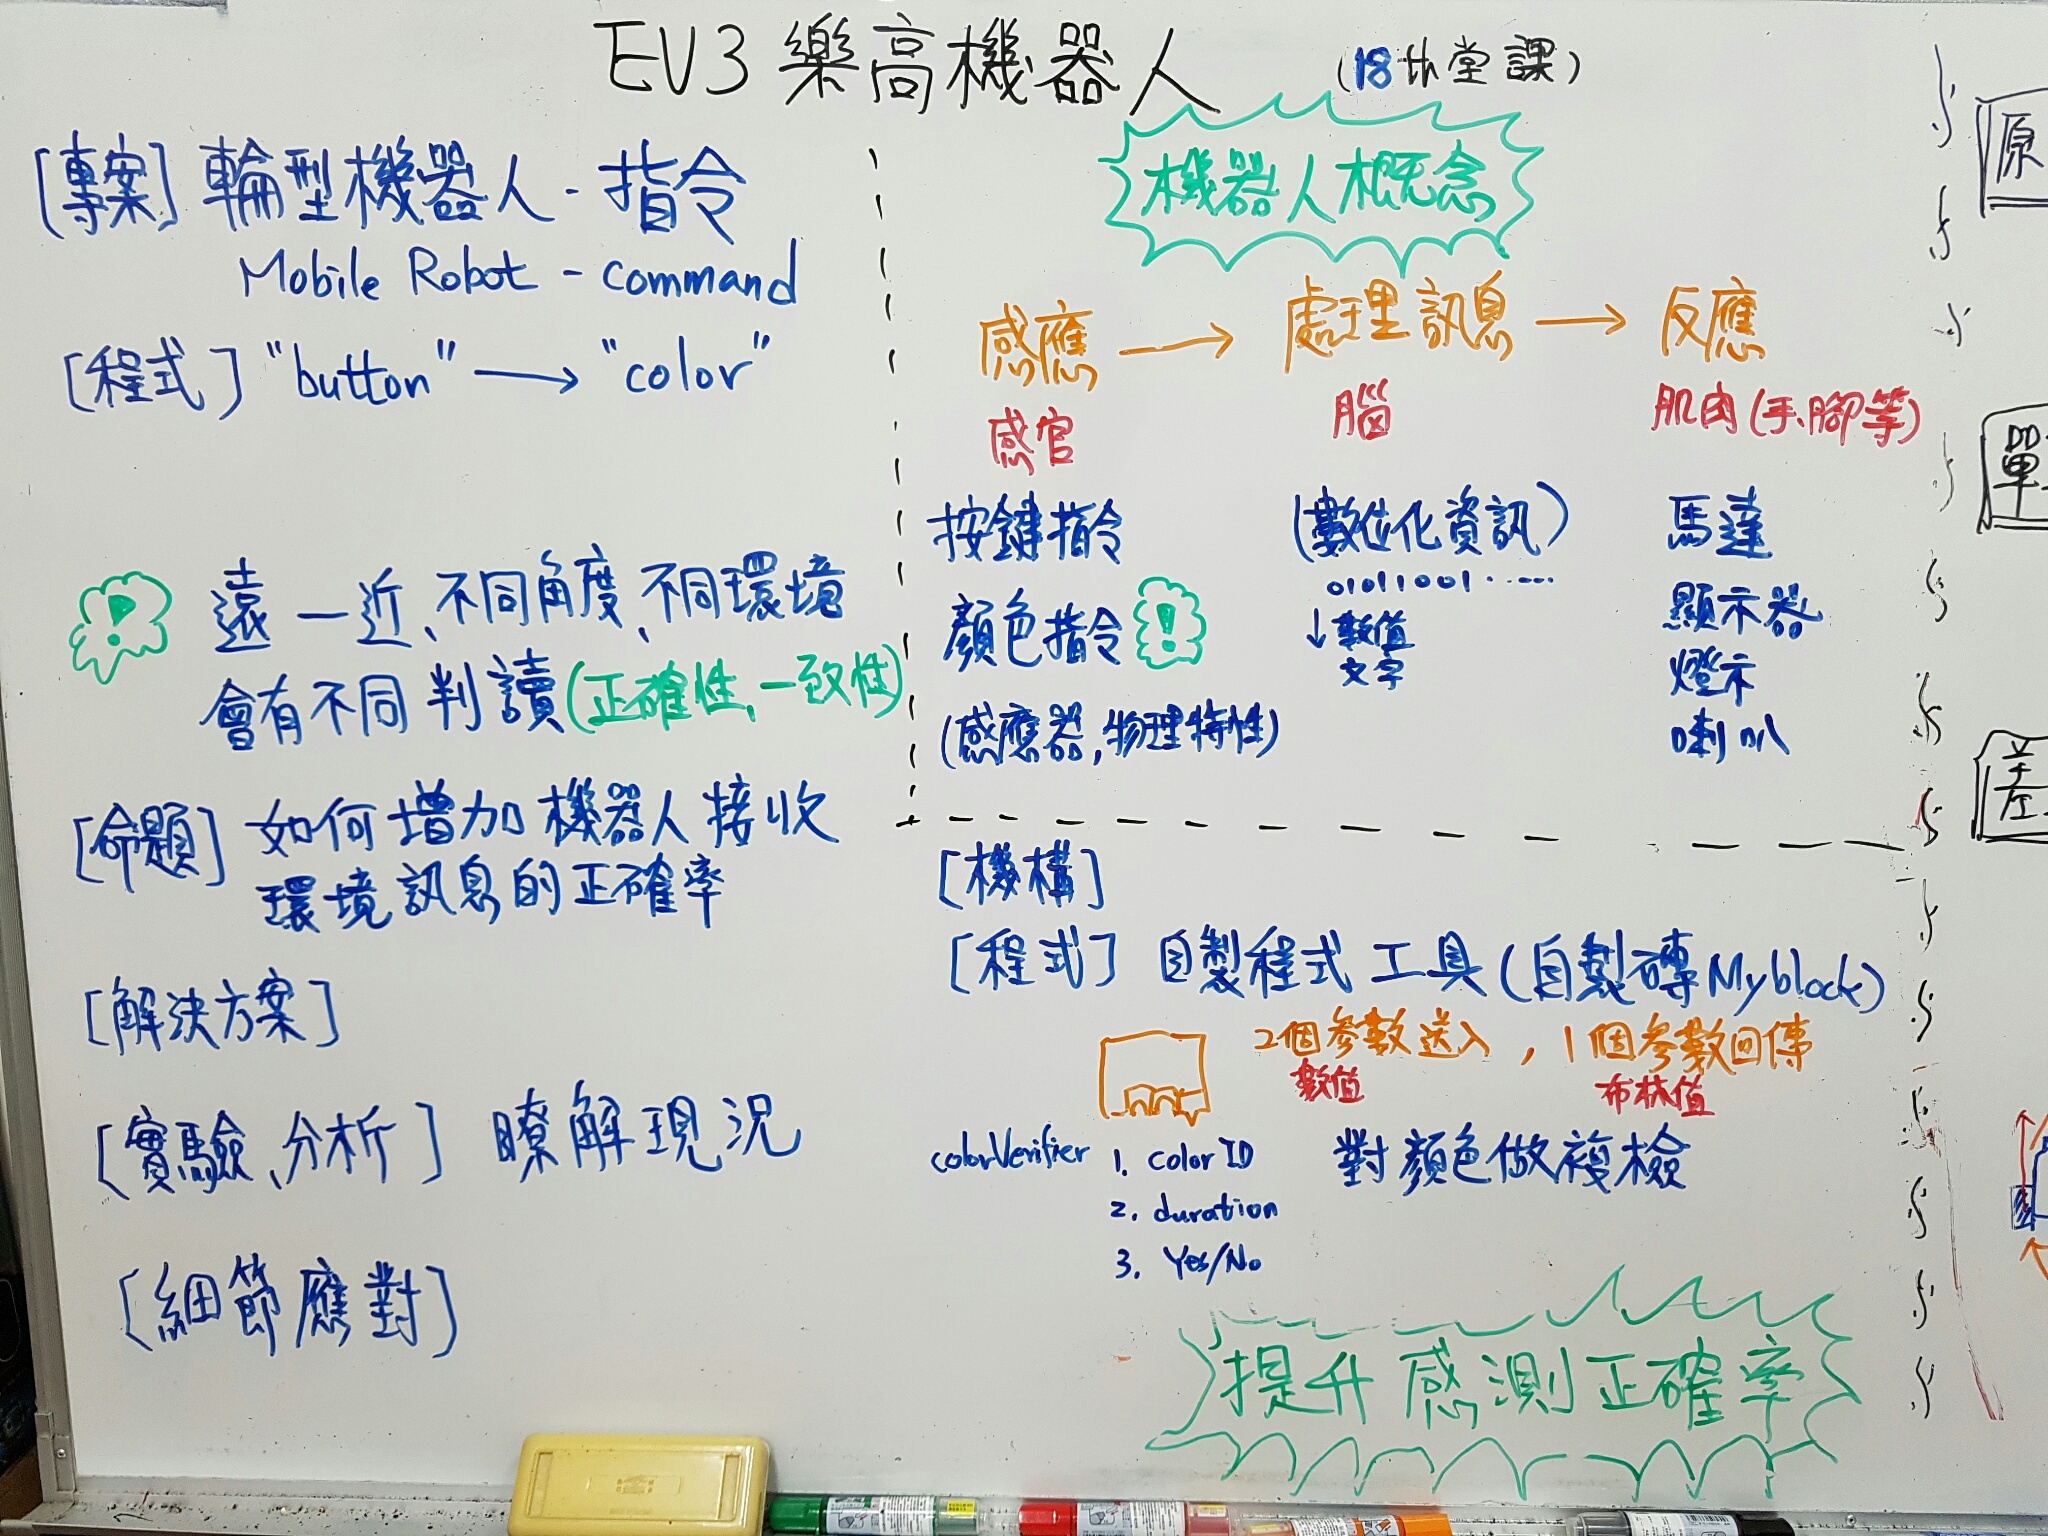 EV3 樂高機器人 (18th 堂課)
[專案] 輪型機器人 - 指令
Mobile Robot - command
[程式] "button" → "color"
遠一近、不同角度、不同環境
會有不同判讀(正確性, 一致性)
[命題] 如何增加機器人接收
環境訊息的正確率
[解決方案]
[實驗、分析] 瞭解現況
[細節應對]
機器人概念
感應 → 處理訊息 → 反應
感官 腦 肌肉(手、腳等)
按鍵指令 (數位化資訊) 馬達
01011001.....
顏色指令 ! ↓數值 顯示器
文字 燈示
(感應器, 物理特性) 喇叭
[機構]
[程式] 自製程式工具(自製磚Myblock)
2個參數送入, 1個參數回傳
數值 布林值
colorVerifier 1. colorID 對顏色做複檢
2. duration
3. Yes/No
提升感測正確率
原
單
差